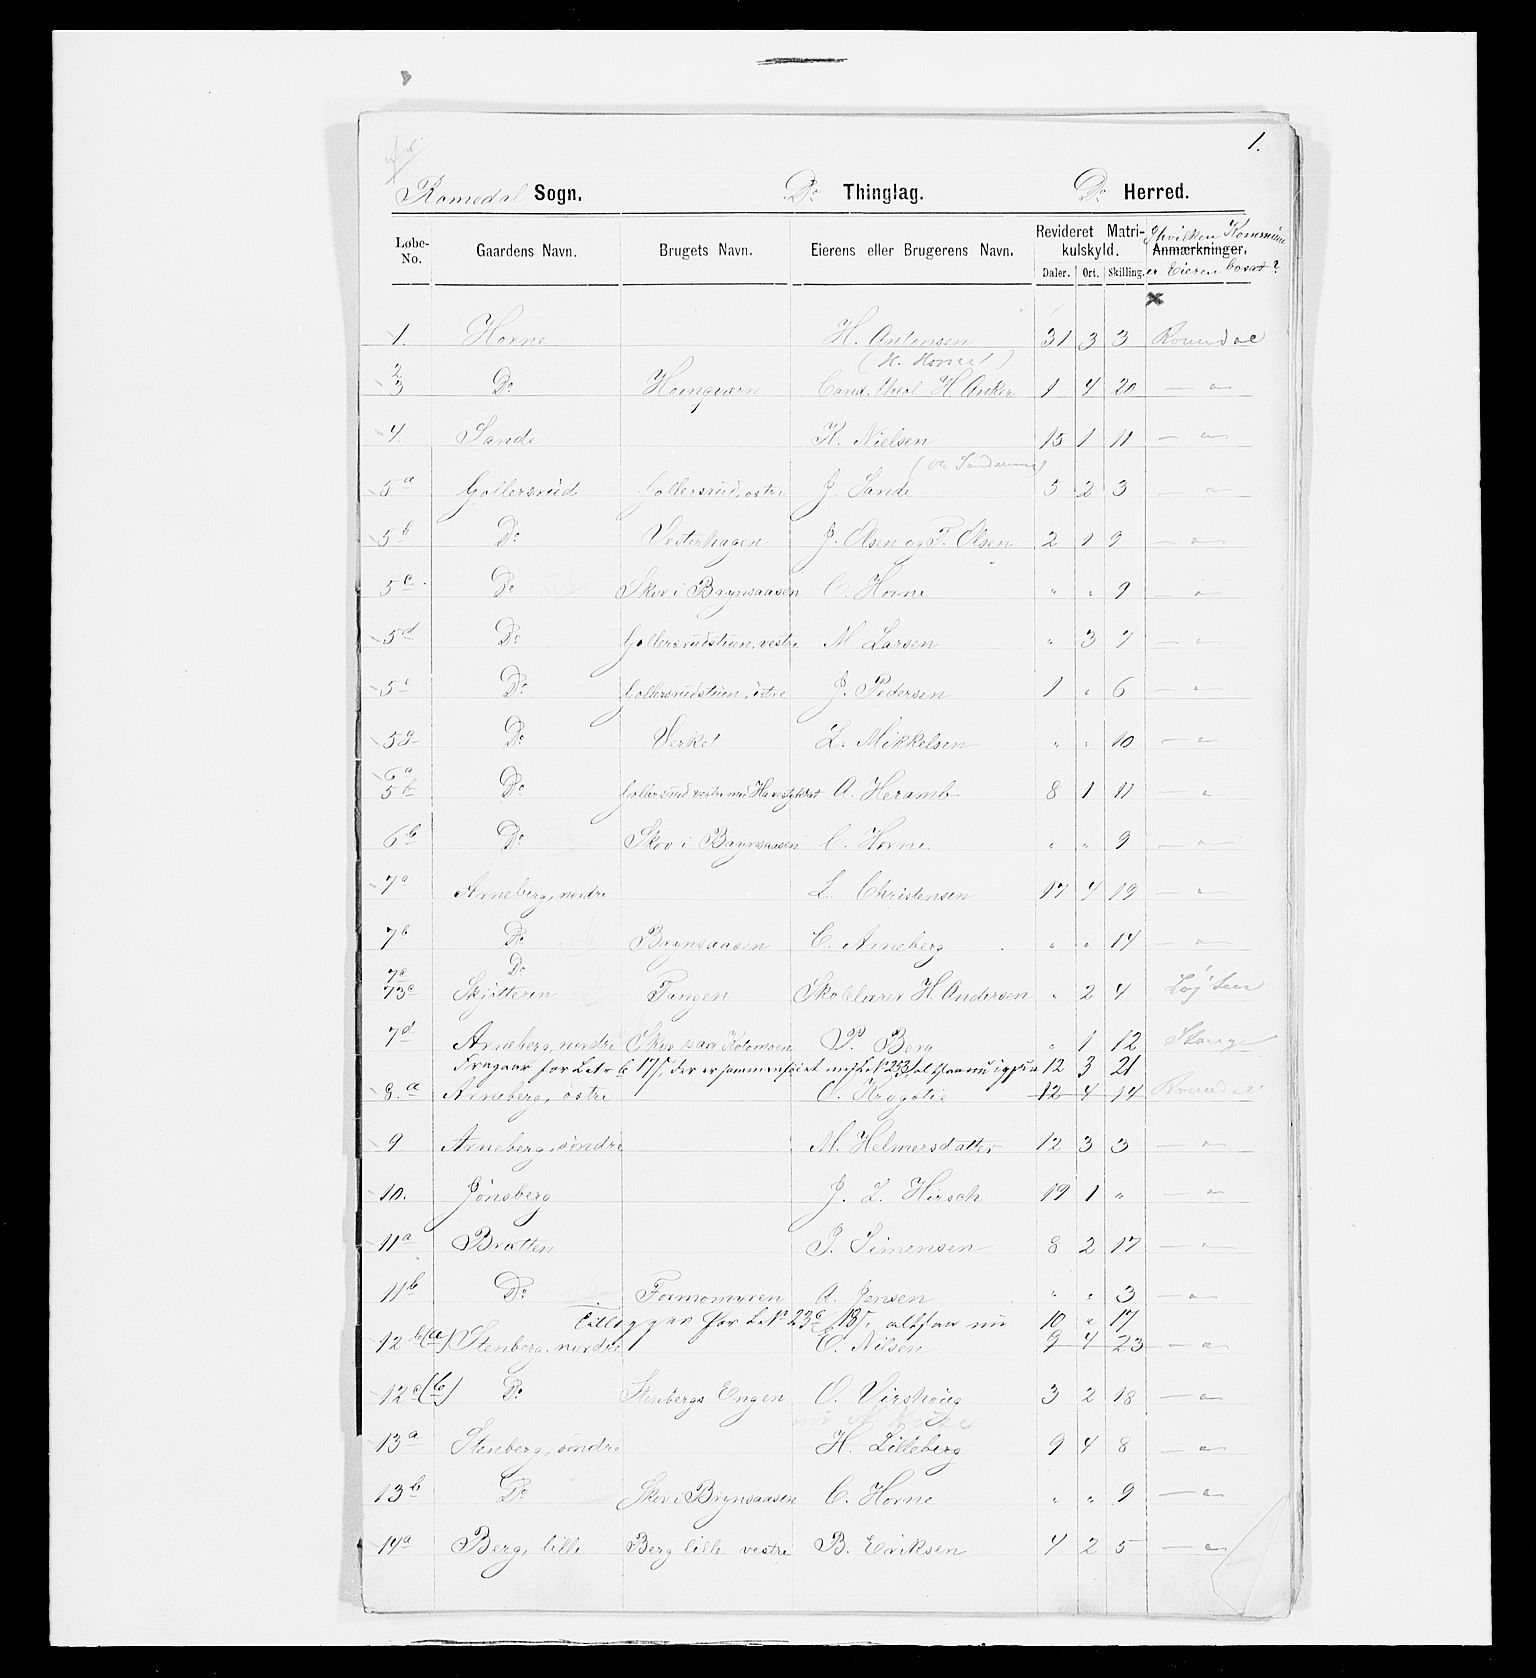 1.
Romedal Sogn. Do Thinglag. Do Herred.
Løbe-No. Gaardens Navn. Brugets Navn. Eierens eller Brugerens Navn. Revideret Matrikulskyld. Daler. Ort. Skilling. Anmærkninger. I hvilken Kommune er Eieren bosat?
1. Horne H. Antonsen 31 3 3 Romedal
(H. Horne)
2 3 Do Hornqværn Cand. theol H Anker 1 4 20 — " —
4. Sande K. Nielsen 15 1 11 — " —
5a Gollersrud Gollersrud, østre J. Sande 5 2 3 — " —
5b Do Vesterhagen J. Olsen og P. Olsen 2 1 9 — " —
5c. Do Skov i Brynsaasen C. Horne " " 9 — " —
5d Do Gollersrudstuen, vestre M Larsen " 3 7 — " —
5e Do Gollersrudstuen, østre J. Pedersen 1 " 6 — " —
5g Do Verket L. Mikkelsen " " 10 — " —
6a 5b Do Gollersrud vestre med Havestykket A. Heramb 8 1 11 — " —
6b Do Skov i Brynsaasen C. Horne " " 9 — " —
7a Arneberg, nordre L. Christensen 17 4 19 — " —
7b Do Brynsaasen C. Arneberg " " 14 — " —
7c Do
73c Skjøtteren Tangen Skolelærer H. Andersen " 2 4 Løiten
7d Arneberg, nordre Skov paa Kolomoen P. Berg " 1 12 Stange
Fragaar for 12 3 21
8.a Arneberg, østre O. Kragstie 12 4 14 Romedal
9 Arneberg, søndre M. Helmersdatter 12 3 3 — " —
10. Jønsberg J. L. Hirsch 19 1 " — " —
11a Bratten P. Simensen 8 2 17 — " —
11b Do Formomyren A. Jensen " " 3 — " —
Tillægges for L.No 23c altsaa nu 10 " 17
12b(a) Stenberg, nordre O. Nilsen 9 4 23 — " —
12c(b) Do Stenbergs Engen O. Virshoug 3 2 18 — " —
13a Stenberg, søndre H. Lilleberg 9 4 8 — " —
13b Do Skov i Brynsaasen C. Horne " " 9 — " —
14a Berg, lille Berg lille vestre B. Eriksen 4 2 5 — " —